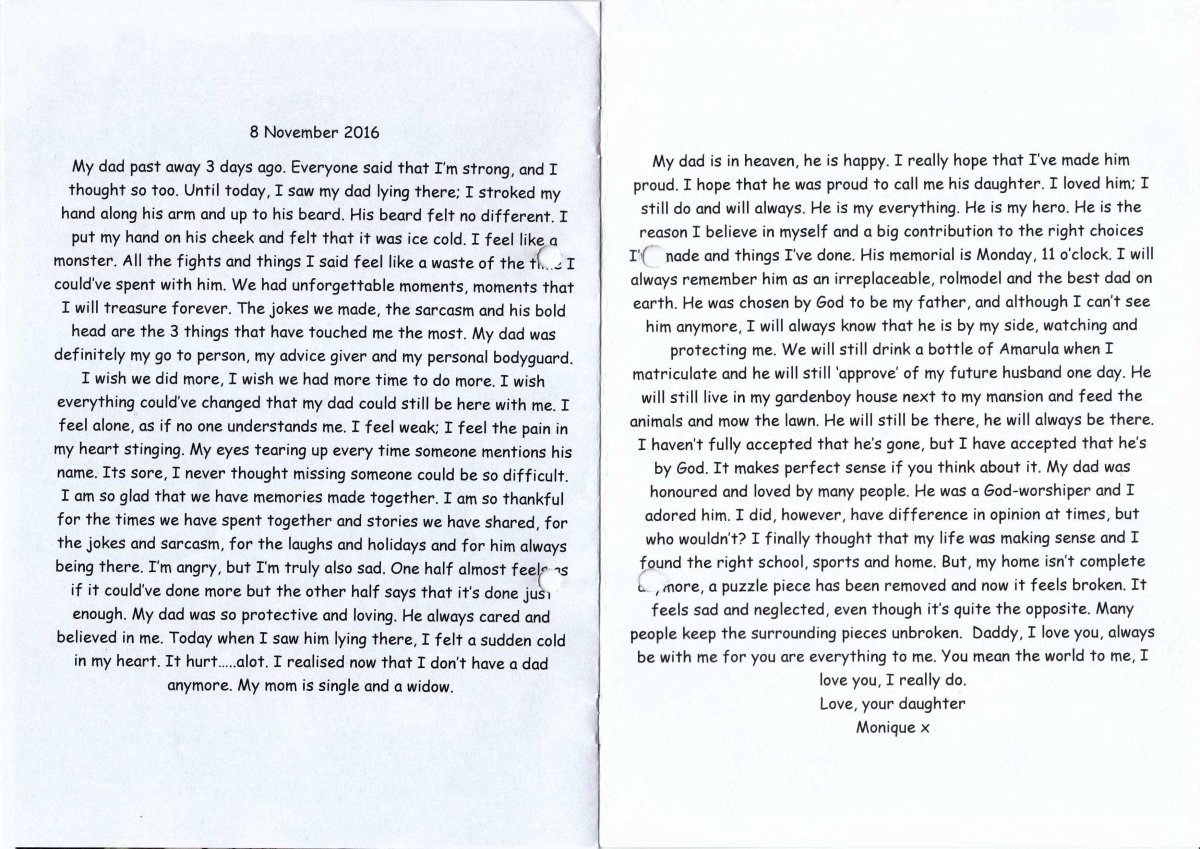 8 November 2016
My dad past away 3 days ago. Everyone said that I'm strong, and I
thought so too. Until today, I saw my dad lying there; I stroked my
hand along his arm and up to his beard. His beard felt no different. I
put my hand on his cheek and felt that it was ice cold. I feel like a
monster. All the fights and things I said feel like a waste of the I
could've spent with him. We had unforgettable moments, moments that
I will treasure forever. The jokes we made, the sarcasm and his bold
head are the 3 things that have touched me the most. My dad was
definitely my go to person, my advice giver and my personal bodyguard.
I wish we did more, I wish we had more time to do more. I wish
everything could've changed that my dad could still be here with me. I
feel alone, as if no one understands me. I feel weak; I feel the pain in
my heart stinging. My eyes tearing up every time someone mentions his
name. Its sore, I never thought missing someone could be so difficult.
I am so glad that we have memories made together. I am so thankful
for the times we have spent together and stories we have shared, for
the jokes and sarcasm, for the laughs and holidays and for him always
being there. I'm angry, but I'm truly also sad. One half almost feels as
if it could've done more but the other half says that it's done just
enough. My dad was so protective and loving. He always cared and
believed in me. Today when I saw him lying there, I felt a sudden cold
in my heart. It hurt.....alot. I realised now that I don't have a dad
anymore. My mom is single and a widow.
My dad is in heaven, he is happy. I really hope that I've made him
proud. I hope that he was proud to call me his daughter. I loved him; I
still do and will always. He is my everything. He is my hero. He is the
reason I believe in myself and a big contribution to the right choices
made and things I've done. His memorial is Monday, 11 o'clock. I will
always remember him as an irreplaceable, rolmodel and the best dad on
earth. He was chosen by God to be my father, and although I can't see
him anymore, I will always know that he is by my side, watching and
protecting me. We will still drink a bottle of Amarula when I
matriculate and he will still 'approve' of my future husband one day. He
will still live in my gardenboy house next to my mansion and feed the
animals and mow the lawn. He will still be there, he will always be there.
I haven't fully accepted that he's gone, but I have accepted that he's
by God. It makes perfect sense if you think about it. My dad was
honoured and loved by many people. He was a God-worshiper and I
adored him. I did, however, have difference in opinion at times, but
who wouldn't? I finally thought that my life was making sense and I
found the right school, sports and home. But, my home isn't complete
a puzzle piece has been removed and now it feels broken. It
feels sad and neglected, even though it's quite the opposite. Many
people keep the surrounding pieces unbroken. Daddy, I love you, always
be with me for you are everything to me. You mean the world to me, I
love you, I really do.
Love, your daughter
Monique x